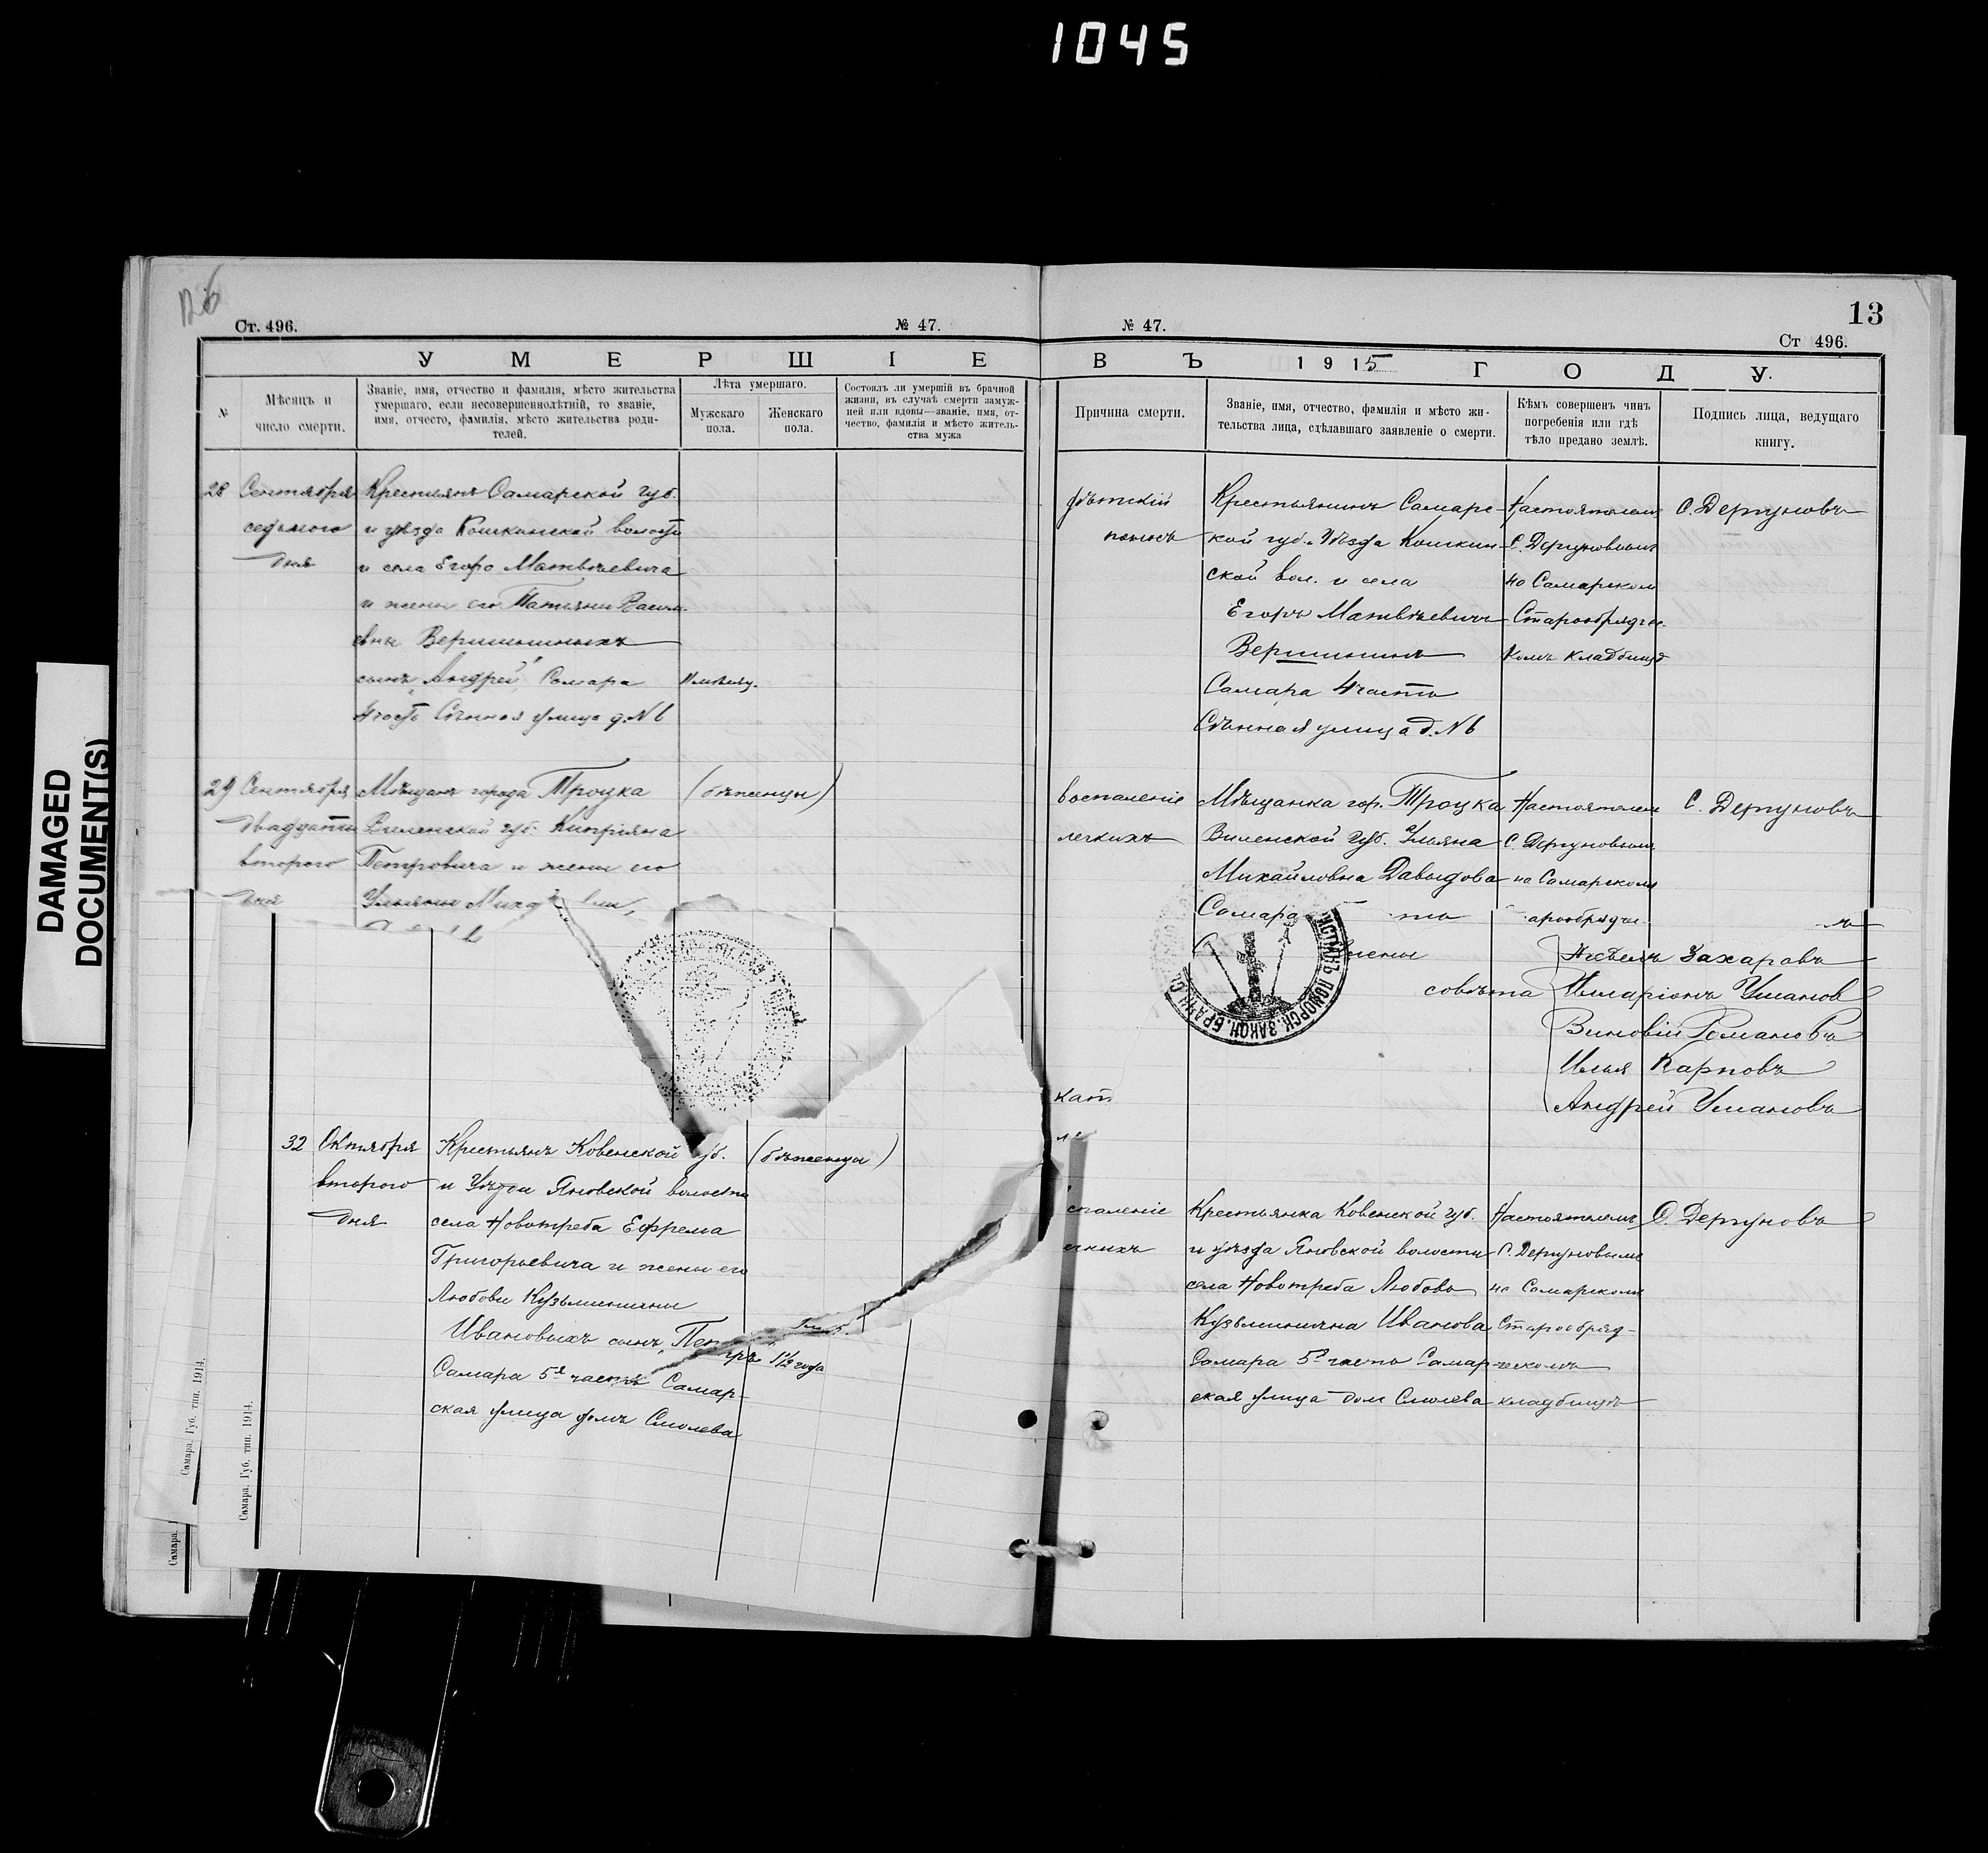 1045
DAMAGED
DOCUMENT(S)
126
Ст. 496.
№ 47.
У М Е Р Ш І Е
№
Мѣсяцъ и
число смерти.
Званіе, имя, отчество и фамилія, мѣсто жительства
умершаго, если несовершеннолѣтній, то званіе,
имя, отчесто, фамилія, мѣсто жительства роди-
телей.
Лѣта умершаго.
Мужскаго
пола.
Женскаго
пола.
Состоялъ ли умершій въ брачной
жизни, въ случаѣ смерти замуж-
ней или вдовы—званіе, имя, от-
чество, фамилія и мѣсто житель-
ства мужа
28 Сентября
седьмого
дня
Крестьянъ Самарской губ.
и уѣзда Кошкинской волости
и села Егора Матвѣевича
и жены его Татьяны
евны Вершининыхъ
сынъ „Андрей" Самара
4 часть Сѣнная улица д. № 6
29 Сентября
двадцать
второго
дня
Мѣщанъ города Троцка
Виленской губ. Кипріяна
Петровича и жены его
Ульяны
(бѣженцы)
32 Октября
второго
дня
Крестьянъ Ковенской губ.
и Уѣзда Яновской волости
села Новотреба Ефрема
Григорьевича и жены его
Любови Кузьминичны
Ивановыхъ сынъ „Петръ
Самара 5я часть Самар-
ская улица домъ Смолева
(бѣженцы)
1½ года
Самара. Губ. тип. 1914.
Самара. Губ. тип. 1914.
Самара.
13
№ 47.
Ст 496.
В Ъ 1915 Г О Д У.
Причина смерти.
Званіе, имя, отчество, фамилія и мѣсто жи-
тельства лица, сдѣлавшаго заявленіе о смерти.
Кѣмъ совершенъ чинъ
погребенія или гдѣ
тѣло предано землѣ.
Подпись лица, ведущаго
книгу.
дѣтскій
поносъ
Крестьянинъ Самарс-
кой губ. Уѣзда Кошкин-
ской вол. и села
Егоръ Матвѣевичъ
Вершининъ
Самара 4 часть
Сѣнная улица д. № 6
Настоятелемъ
С. Дергуновымъ
на Самарском
Старообрядчес.
комъ кладбищѣ
С. Дергуновъ
воспаленіе
легкихъ
Мѣщанка гор. Троцка
Виленской губ. Ульяна
Михайловна Давыдова
Самара
Настоятелем
С. Дергуновымъ
на Самарскомъ
арообрядчес
С. Дергуновъ
члены
совѣта
Захаровъ
Илларіонъ Ушанов
Виновій Романовъ
Илья Карповъ
Андрей Ушановъ
ПОМОРСК. ЗАКОН. БРАЧН. С
кат
спаленіе
егкихъ
Крестьянка Ковенской губ.
и уѣзда Яновской волости
села Новотреба Любовь
Кузьминична Иванова
Самара 5я часть Самар-
ская улица дом Смолева
Настоятелемъ
С. Дергуновымъ
на Самарскомъ
Старообряд-
ческомъ
кладбищѣ
С. Дергуновъ